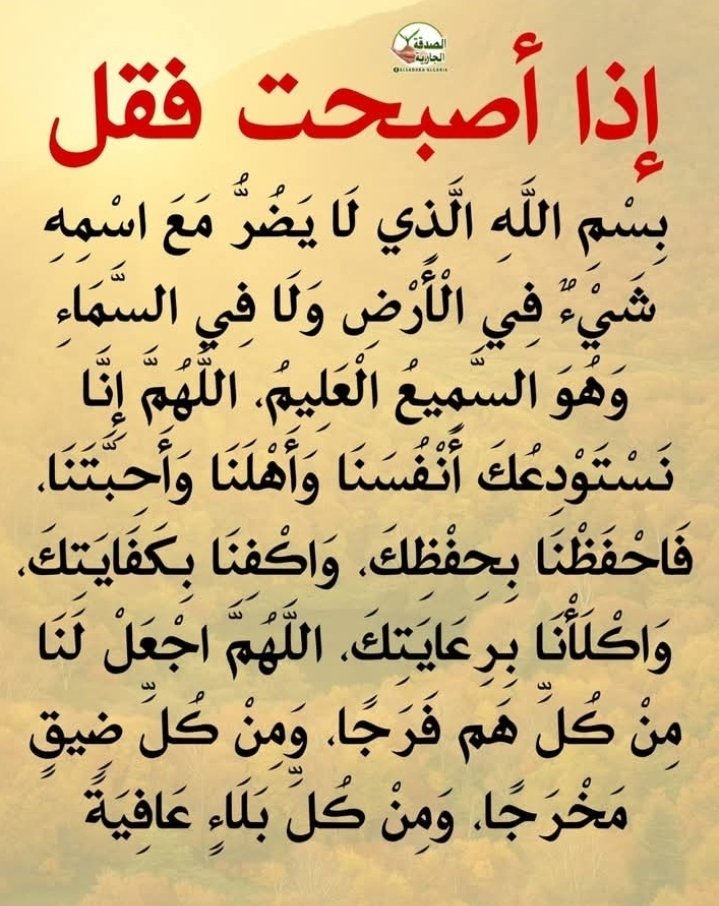 الصدقة
الجارية
إذا أصبحت فقل
بِسْمِ اللَّهِ الَّذِي لَا يَضُرُّ مَعَ اسْمِهِ
شَيْءٌ فِي الْأَرْضِ وَلَا فِي السَّمَاءِ
وَهُوَ السَّمِيعُ الْعَلِيمُ، اللَّهُمَّ إِنَّا
نَسْتَوْدِعُكَ أَنْفُسَنَا وَأَهْلَنَا وَأَحِبَّتَنَا،
فَاحْفَظْنَا بِحِفْظِكَ، وَاكْفِنَا بِكَفَايَتِكَ،
وَاكْلَأْنَا بِرِعَايَتِكَ، اللَّهُمَّ اجْعَلْ لَنَا
مِنْ كُلِّ هَم فَرَجًا، وَمِنْ كُلِّ ضِيقٍ
مَخْرَجًا، وَمِنْ كُلِّ بَلَاءٍ عَافِيَةً